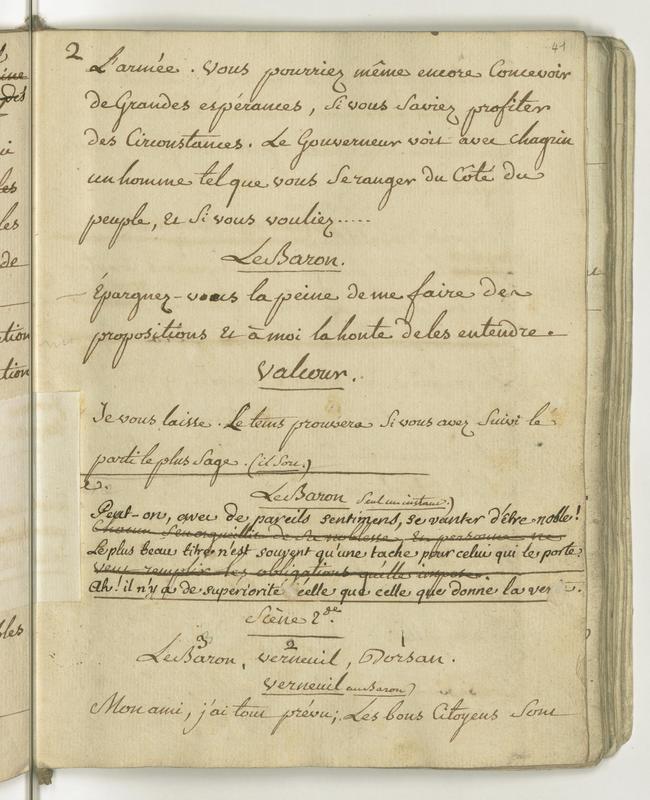 2
41
L'armée. Vous pourriez même encore Concevoir
de Grandes espérances, Si vous Saviez profiter
des Circonstances. Le Gouverneur voit avec chagrin
un homme tel que vous Se ranger du Côté du
peuple, Et Si vous vouliez.....
Le Baron.
Épargnez-vous la peine de me faire des
propositions Et à moi la honte de les entendre.
Valcour.
Je vous laisse. Le tems prouvera Si vous avez Suivi le
parti le plus Sage. (il Sort.)
Le Baron Seul un instant.)
Peut-on, avec de pareils sentimens, se vanter d'être noble!
Chacun S'enorgueillit de Sa noblesse, Et personne ne
Le plus beau titre n'est souvent qu'une tache pour celui qui le porte
veut remplir les obligations qu'elle impose.
Ah! il n'y a de supériorité celle que celle que donne la
Scène 2de.
3 2 1
Le Baron, Verneuil, Dorsan.
Verneuil au Baron)
Mon ami, j'ai tout prévu; Les bons Citoyens Sont